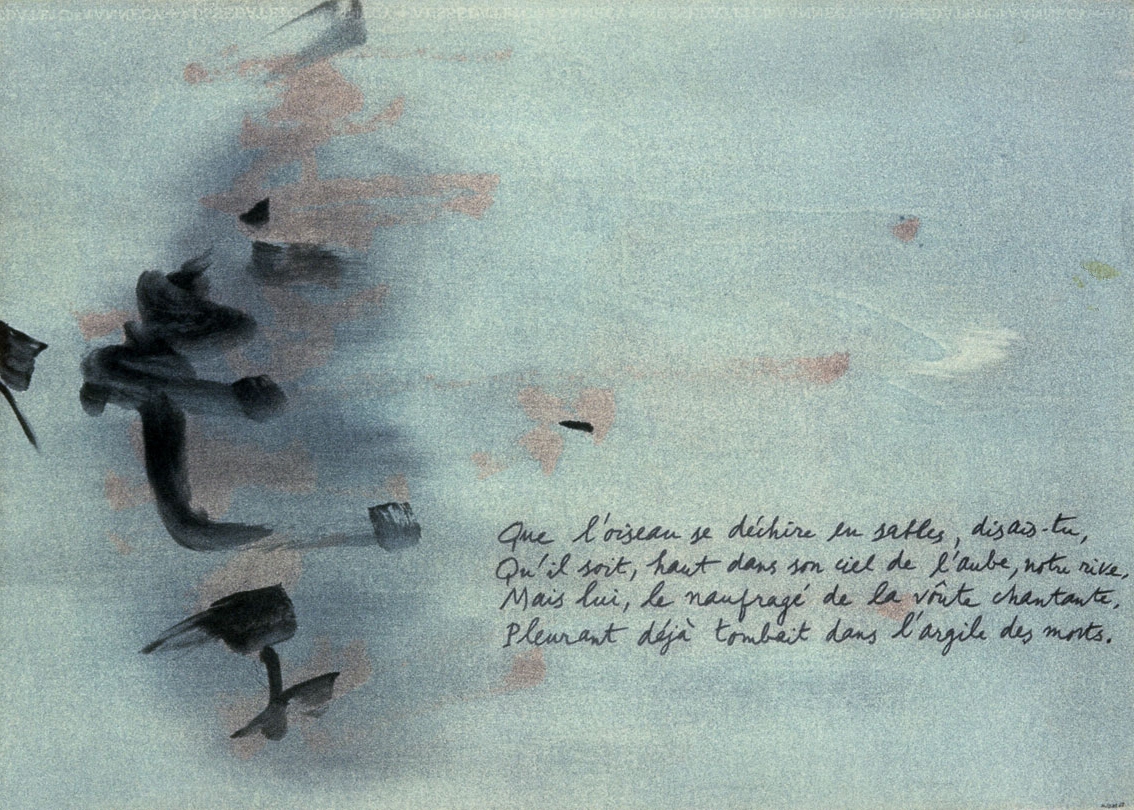 Que l'oiseau se déchire en sables, disais-tu,
Qu'il soit, haut dans son ciel de l'aube, notre rive,
Mais lui, le naufragé de la voûte chantante,
Pleurant déjà tombait dans l'argile des morts.